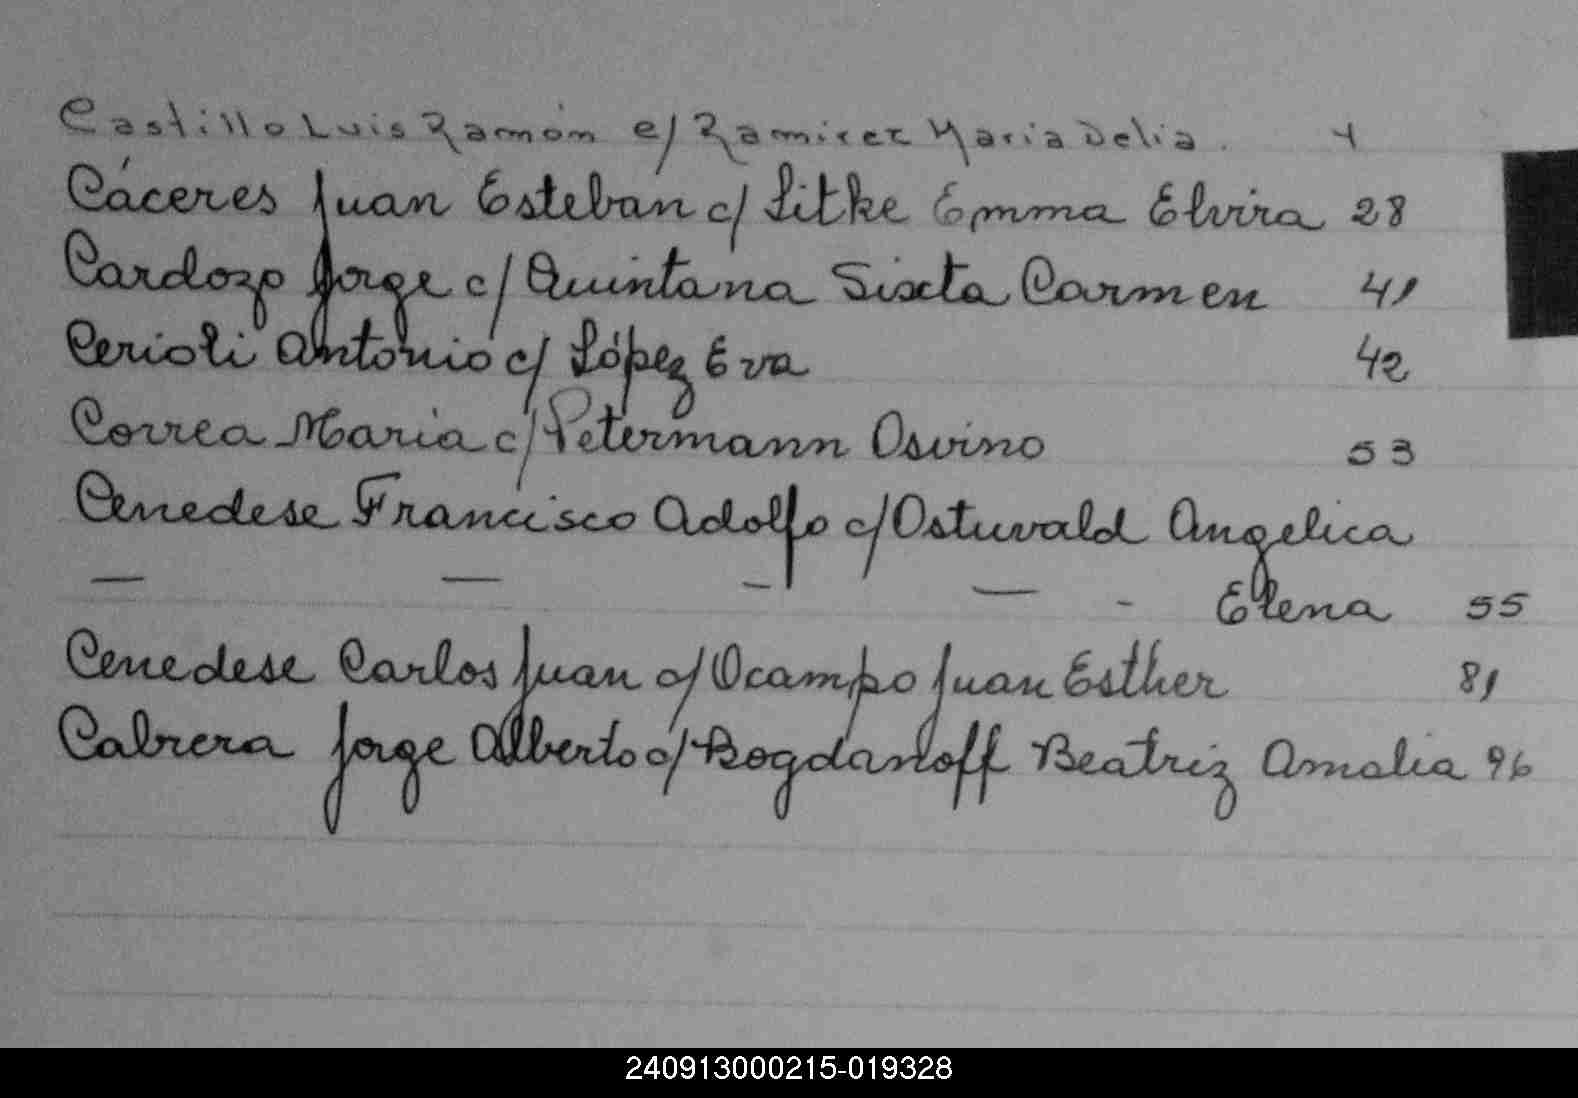 Castillo Luis Ramón c/ Ramirez Maria Delia. 4
Cáceres Juan Esteban c/ Litke Emma Elvira 28
Cardozo Jorge c/ Quintana Sixta Carmen 41
Cerioli Antonio c/ López Eva 42
Correa Maria c/ Petermann Osvino 53
Cenedese Francisco Adolfo c/ Ostuvald Angelica
— — - — - Elena 55
Cenedese Carlos Juan c/ Ocampo Juan Esther 81
Cabrera Jorge Alberto c/ Bogdanoff Beatriz Amalia 96
240913000215-019328